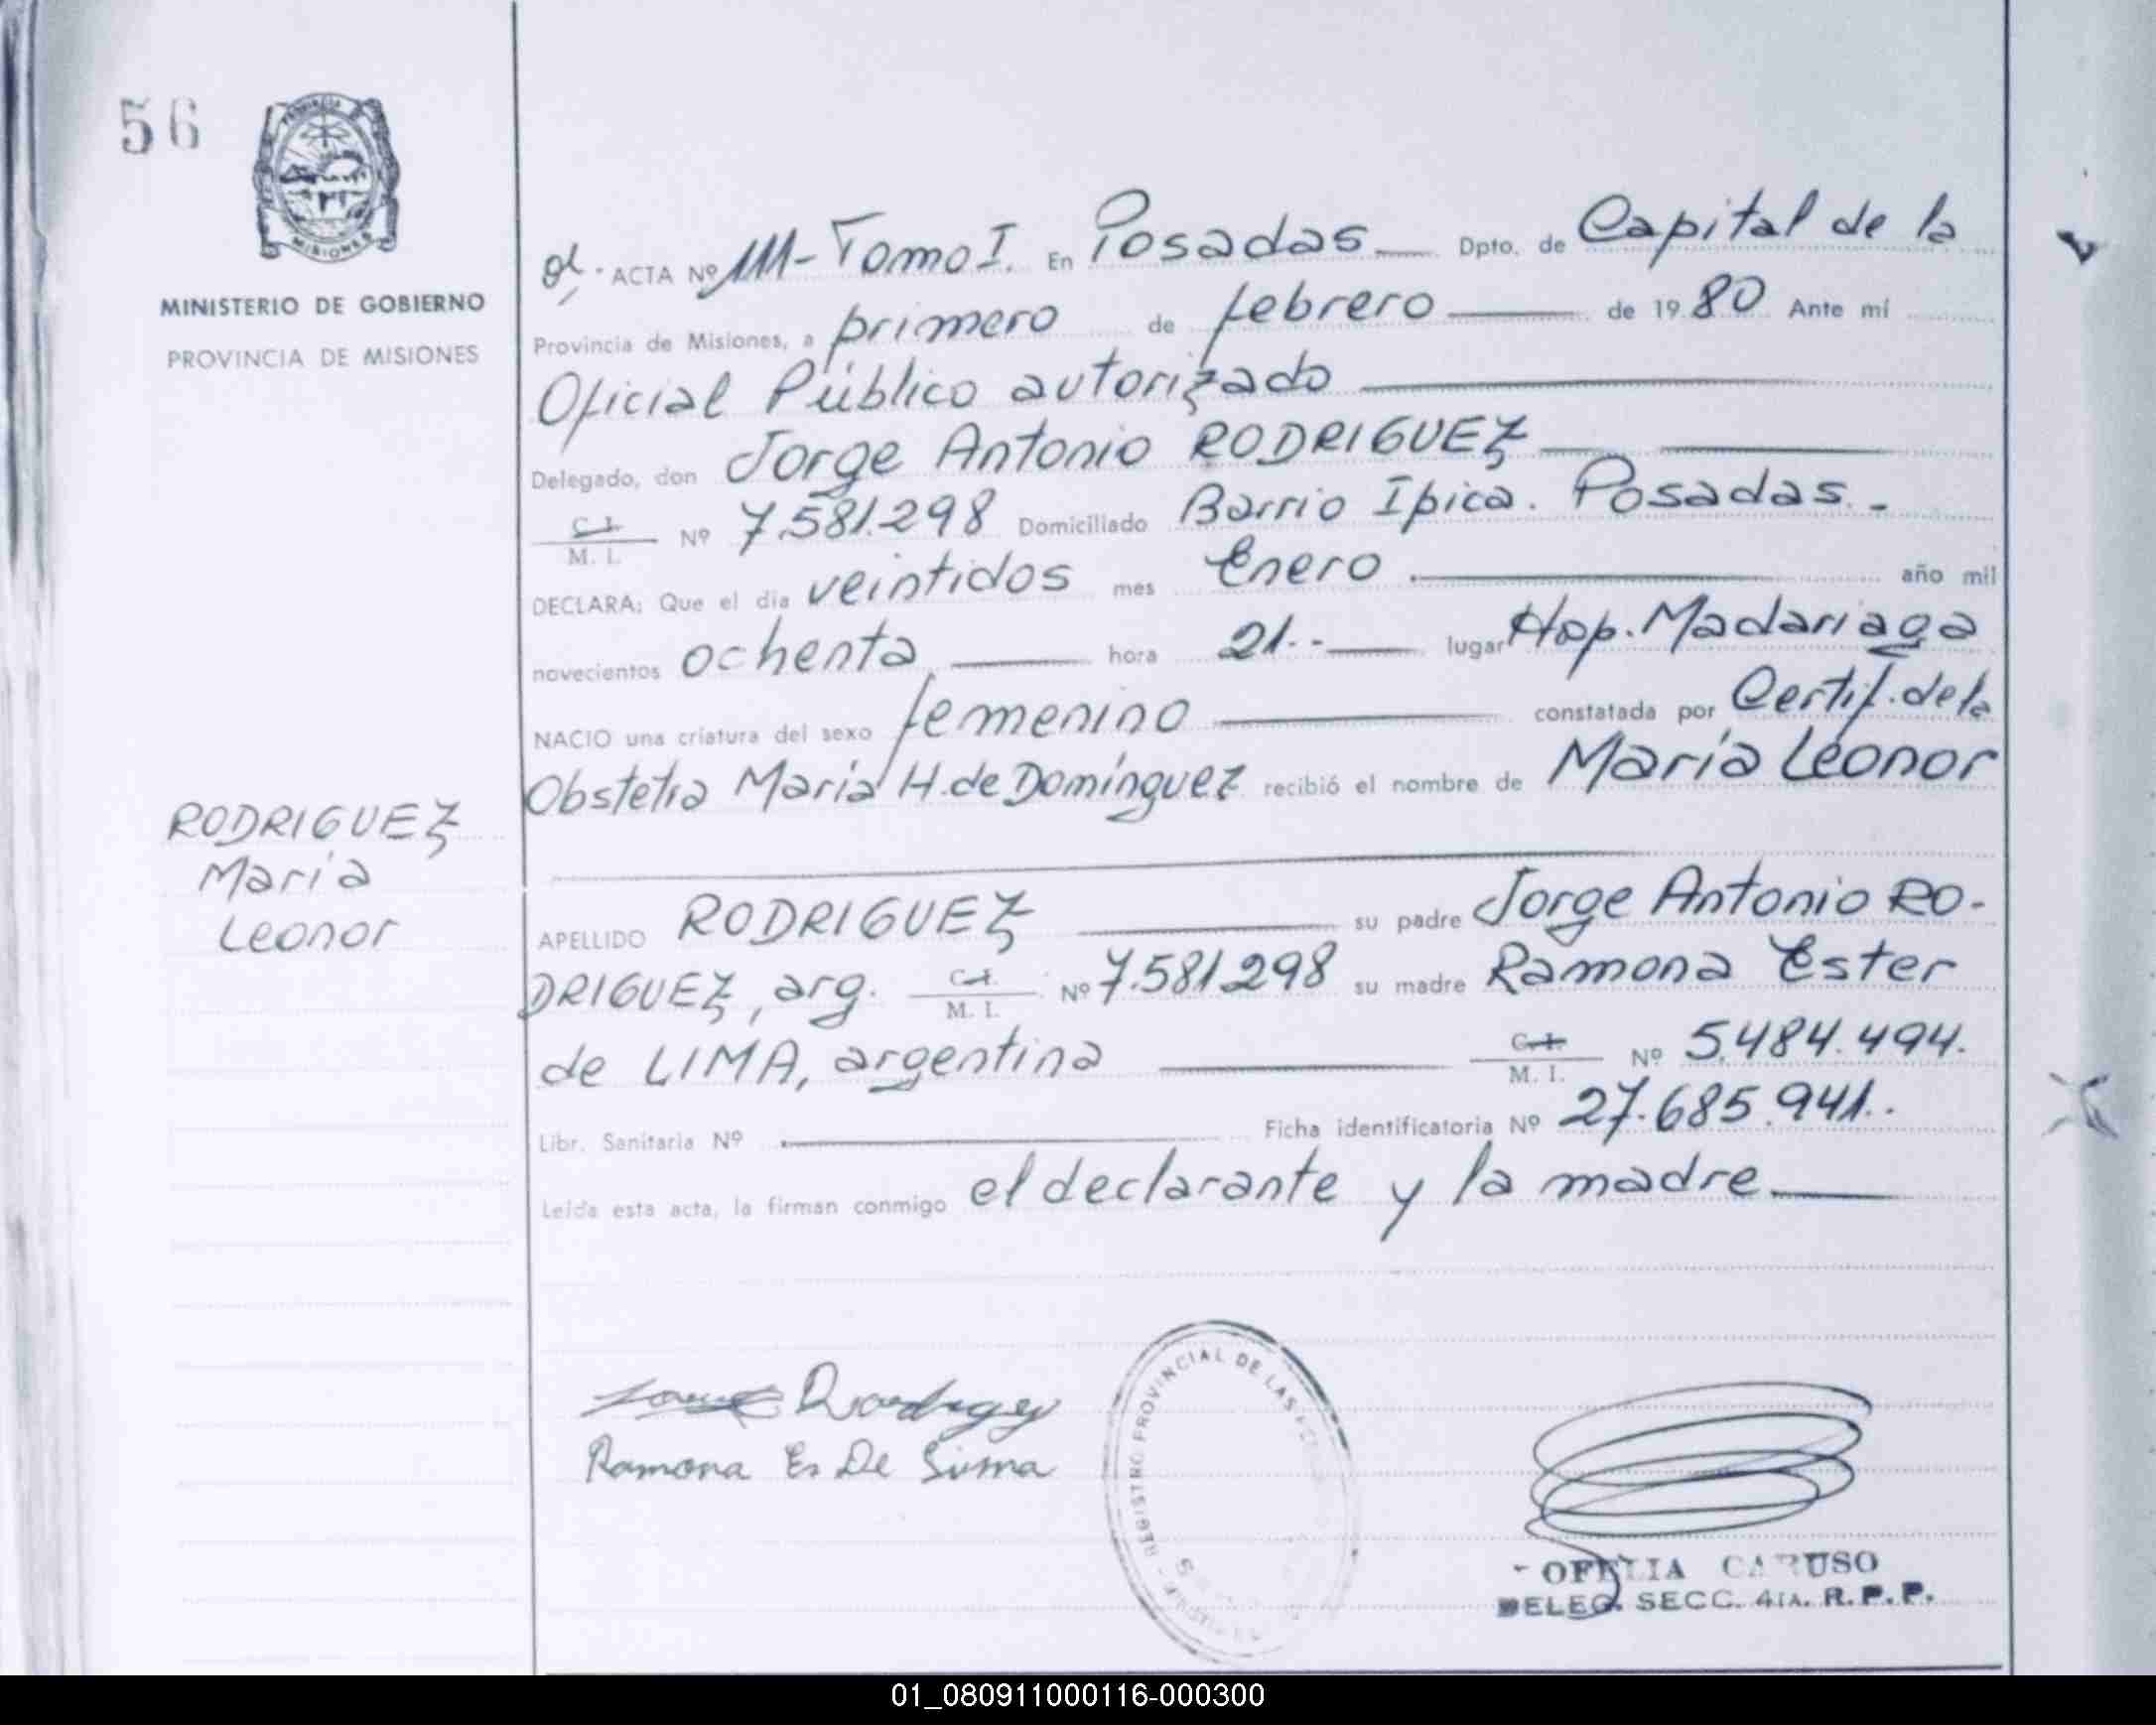 56
PROVINCIA
MISIONES
MINISTERIO DE GOBIERNO
PROVINCIA DE MISIONES
RODRIGUEZ
María
Leonor
ACTA Nº 111-Tomo I. En Posadas Dpto. de Capital de la
Provincia de Misiones, a primero de febrero de 1980 Ante mí
Oficial Público autorizado
Delegado, don Jorge Antonio RODRIGUEZ
C. I.
M. I. Nº 7.581.298 Domiciliado Barrio Ipica. Posadas.-
DECLARA: Que el día veintidos mes Enero año mil
novecientos ochenta hora 21.- lugar Hop. Madariaga
NACIO una criatura del sexo femenino constatada por Certif. de la
Obstetra María H. de Domínguez recibió el nombre de María Leonor
APELLIDO RODRIGUEZ su padre Jorge Antonio RO-
DRIGUEZ, arg. C. I. M. I. Nº 7.581.298 su madre Ramona Ester
de LIMA, argentina C. I. M. I. Nº 5.484.494.
Libr. Sanitaria Nº Ficha identificatoria Nº 27.685.941.
Leída esta acta, la firman conmigo el declarante y la madre
Ramona Es De
REGISTRO PROVINCIAL DE LAS
OFELIA CARUSO
DELEG. SECC. 4ta. R.P.P.
01_080911000116-000300